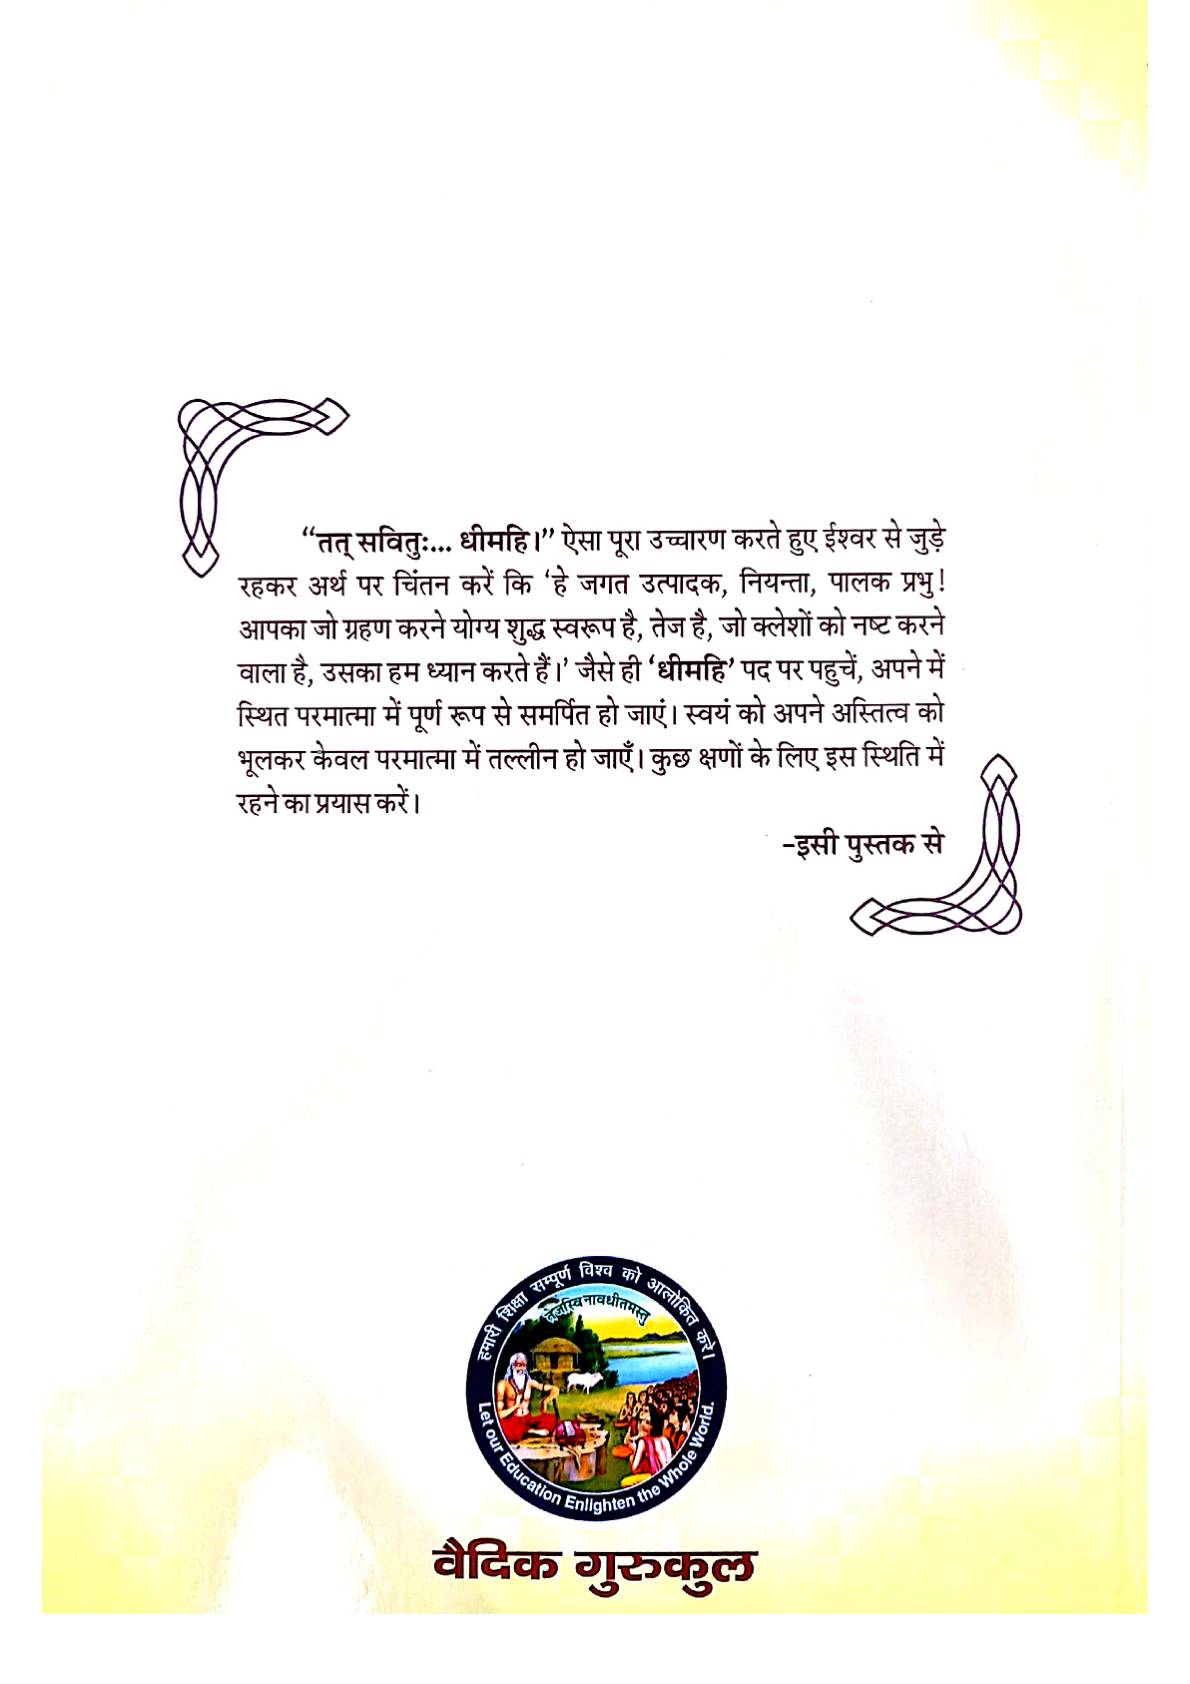 “तत् सवितुः... धीमहि।” ऐसा पूरा उच्चारण करते हुए ईश्वर से जुड़े
रहकर अर्थ पर चिंतन करें कि ‘हे जगत उत्पादक, नियन्ता, पालक प्रभु!
आपका जो ग्रहण करने योग्य शुद्ध स्वरूप है, तेज है, जो क्लेशों को नष्ट करने
वाला है, उसका हम ध्यान करते हैं।’ जैसे ही ‘धीमहि’ पद पर पहुचें, अपने में
स्थित परमात्मा में पूर्ण रूप से समर्पित हो जाएं। स्वयं को अपने अस्तित्व को
भूलकर केवल परमात्मा में तल्लीन हो जाएँ। कुछ क्षणों के लिए इस स्थिति में
रहने का प्रयास करें।
-इसी पुस्तक से
हमारी शिक्षा सम्पूर्ण विश्व को आलोकित करे।
तेजस्वि नावधीतमस्तु
Let our Education Enlighten the Whole World.
वैदिक गुरुकुल